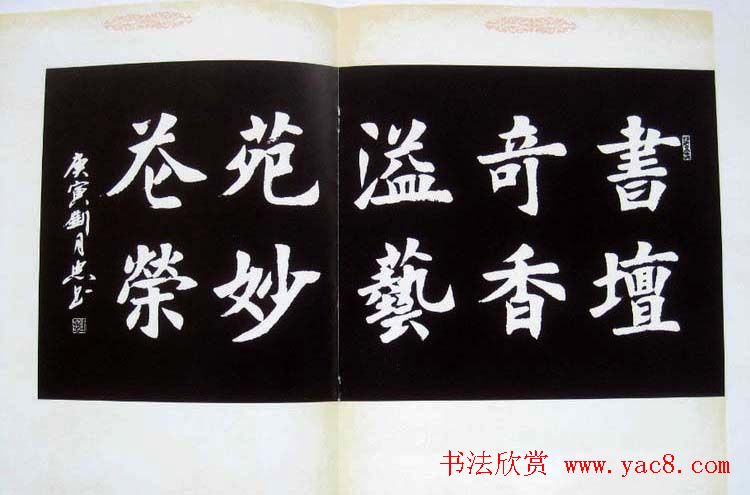 書壇
奇香
溢藝
苑妙
花榮
庚寅劉月忠书
书法欣赏 www.yac8.com